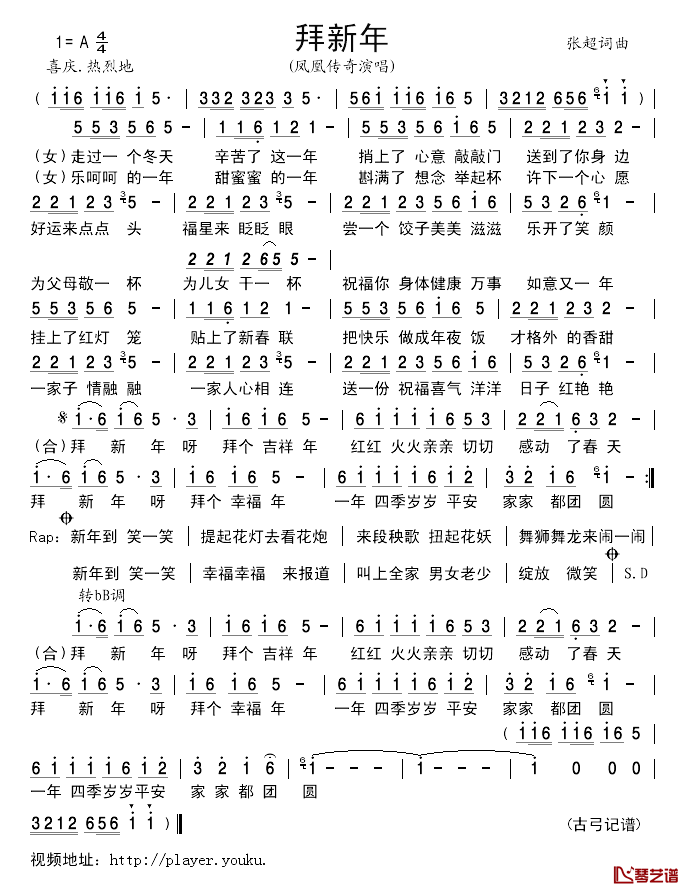 拜新年
1= A 4/4
张超词曲
喜庆.热烈地
(凤凰传奇演唱)
( i i6 i i6 i6 5· | 332 323 35· | 561 i i6 i i6 i65 | 3212 656 i i ) |
553 565 - | 116 121 - | 553 565 i65 | 553 216 1 - |
(女)走过一 个冬天 辛苦了 这一年 捎上了 心意 敲敲门 送到了你身 边
(女)乐呵呵 的一年 甜蜜蜜 的一年 斟满了 想念 举起杯 许下一个心 愿
221 235 - | 221 235 - | 221 235 6i65 | 553 26 1 - |
好运来点点 头 福星来 眨眨 眼 尝一个 饺子美美 滋滋 乐开了笑 颜
221 2655 - |
为父母敬一 杯 为儿女 干一 杯 祝福你 身体健康 万事 如意又一 年
553 565 - | 116 121 - | 553 565 i65 | 221 232 - |
挂上了红灯 笼 贴上了新春 联 把快乐 做成年夜 饭 才格外 的香甜
221 235 - | 221 235 - | 221 235 6i6 | 553 26 1 - |
一家子 情融 融 一家人心相 连 送一份 祝福喜气 洋洋 日子 红艳 艳
i·6 i6 5·3 | i6 i65 - | 6i i i i653 | 221 63 2 - |
(合)拜 新 年 呀 拜个 吉祥 年 红红 火火亲亲 切切 感动 了春 天
i·6 i6 5·3 | i6 i65 - | 6i i i i6 i2 | 32 i6 i - :||
拜 新 年 呀 拜个 幸福 年 一年 四季岁岁 平安 家家 都团 圆
Rap: 新年到 笑一笑 | 提起花灯去看花炮 | 来段秧歌 扭起花妖 | 舞狮舞龙来闹一闹 |
新年到 笑一笑 | 幸福幸福 来报道 | 叫上全家 男女老少 | 绽放 微笑 | S.D
转bB调
i·6 i6 5·3 | i6 i65 - | 6i i i i653 | 221 63 2 - |
(合)拜 新 年 呀 拜个 吉祥 年 红红 火火亲亲 切切 感动 了春 天
i·6 i6 5·3 | i6 i65 - | 6i i i i6 i2 | 32 i6 i - |
拜 新 年 呀 拜个 幸福 年 一年 四季岁岁 平安 家家 都团 圆
( i i6 i i6 i65
6i i i i6 i2 | 3 2 i 6 | i - - - | i - - - | i 0 0 0 |
一年 四季岁岁平安 家 家 都 团 圆
3212 656 i i ) ||
(古弓记谱)
视频地址: http://player.youku.
琴艺谱